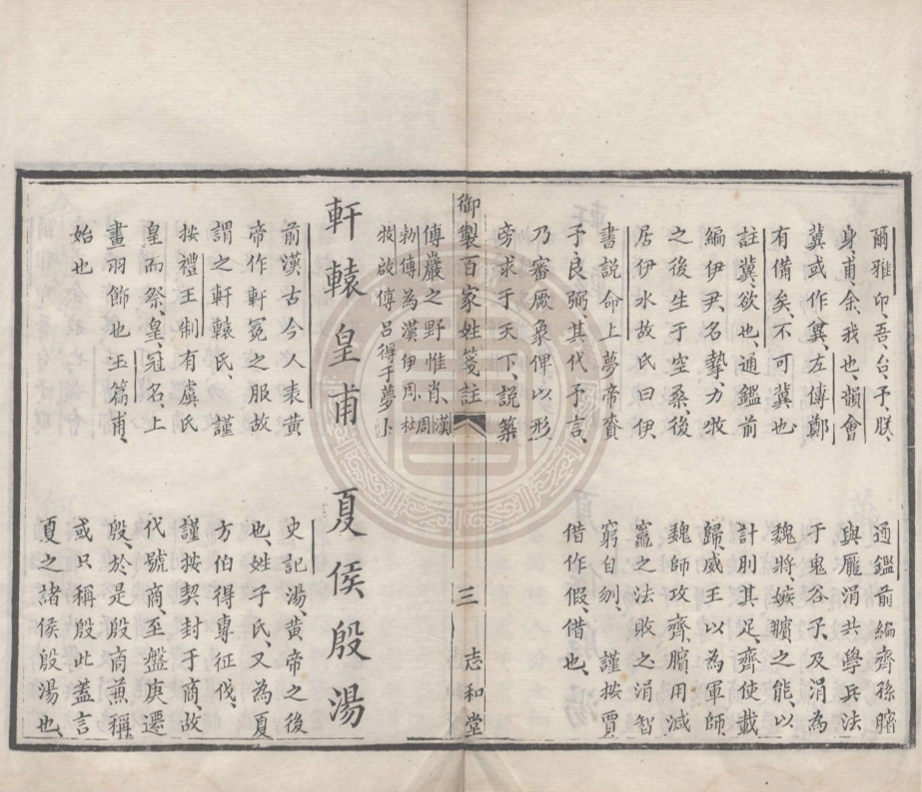 爾雅卬、吾、台、予、朕、
身、甫、余、我也、韻會
冀或作兾、左傳鄭
有備矣、不可冀也
註冀、欲也、通鑑前
編伊尹、名摯、力牧
之後生于空桑、後
居伊水故氏曰伊
書說命上夢帝賚
予良弼、其代予言、
乃審厥象俾以形
旁求于天下、說築
通鑑前編齊孫臏
與龐涓共學兵法
于鬼谷子、及涓為
魏將、嫉臏之能、以
計刖其足、齊使載
歸、威王以為軍師
魏師攻齊、臏用減
竈之法敗之涓智
窮自刎、謹按賈
借作假、借也、
御製百家姓箋註
三
志和堂
傅巖之野惟肖、漢周
勃傳為漢伊周、杜
牧啟傅呂得于夢卜
軒轅皇甫
夏侯殷湯
前漢古今人表黃
帝作軒冕之服故
謂之軒轅氏、謹
按禮王制有虞氏
皇而祭、皇、冠名、上
畫羽飾也玉篇甫、
始也
史記湯黃帝之後
也、姓子氏、又為夏
方伯得專征伐、
謹按契封于商、故
代號商、至盤庚遷
殷、於是殷商蒹稱
或只稱殷此蓋言
夏之諸侯殷湯也、